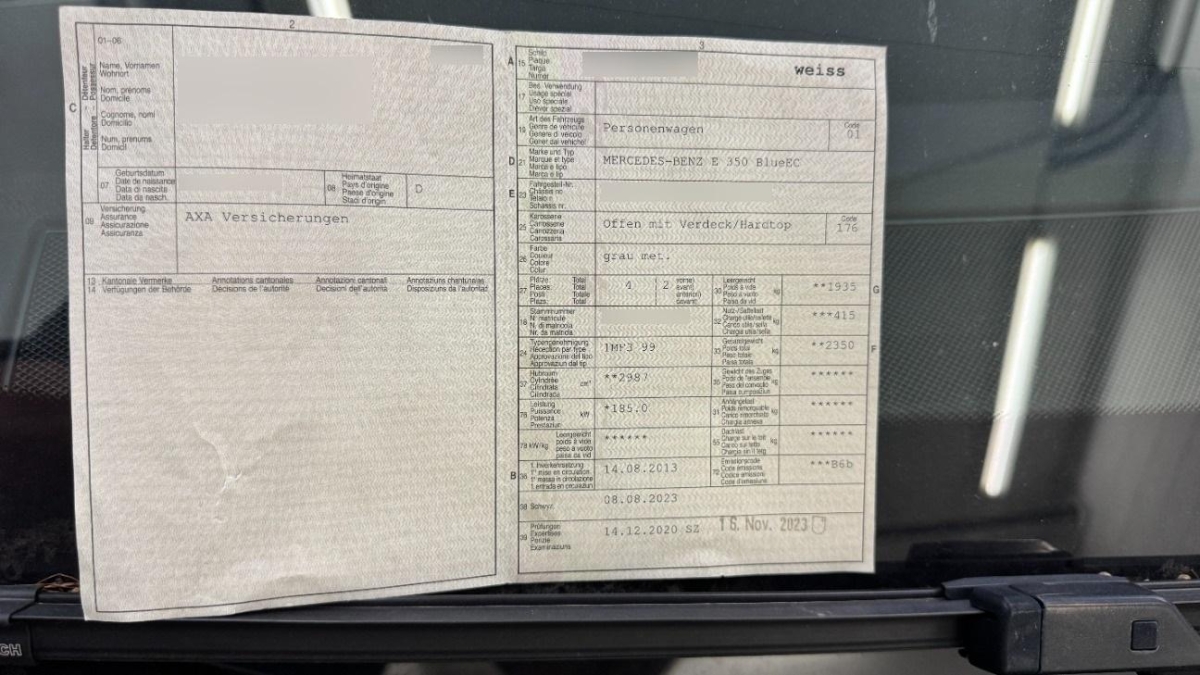 2
01-06
Name, Vornamen
Wohnort
Nom, prénoms
Domicile
Cognome, nomi
Domicilio
Num, prenums
Domicil
C
Halter – Détenteur
Detentore – Possessur
07
Geburtsdatum
Date de naissance
Data di nascita
Data da nasch.
08
Heimatstaat
Pays d'origine
Paese d'origine
Stadi d'origin
D
09
Versicherung
Assurance
Assicurazione
Assicuranza
AXA Versicherungen
13 Kantonale Vermerke Annotations cantonales Annotazioni cantonali Annotaziuns chantunalas
14 Verfügungen der Behörde Décisions de l'autorité Decisioni dell'autorità Disposiziuns da l'autoritad
3
A 15
Schild
Plaque
Targa
Numer
weiss
17
Bes. Verwendung
Usage spécial
Uso speciale
Diever spezial
19
Art des Fahrzeugs
Genre de véhicule
Genere di veicolo
Gener dal vehichel
Personenwagen
Code
01
D 21
Marke und Typ
Marque et type
Marca e tipo
Marca e tip
MERCEDES-BENZ E 350 BlueEC
E 23
Fahrgestell-Nr.
Châssis no
Telaio n.
Schassis nr.
25
Karosserie
Carrosserie
Carrozzeria
Carossaria
Offen mit Verdeck/Hardtop
Code
176
26
Farbe
Couleur
Colore
Colur
grau met.
27
Plätze: Total
Places: Total
Posti: Totale
Plazs: Total
4
2
vorne)
avant)
anteriori)
davant)
30
Leergewicht
Poids à vide
Peso a vuoto
Paisa da vid
kg
**1935
G
18
Stammnummer
N° matricule
N. di matricola
Nr. da matricla
32
Nutz-/Sattellast
Charge utile/sellette
Carico utile/sella
Chargia utila/sella
kg
***415
24
Typengenehmigung
Réception par type
Approvazione del tipo
Approvaziun dal tip
1MF3 99
33
Gesamtgewicht
Poids total
Peso totale
Paisa totala
kg
**2350
F
37
Hubraum
Cylindrée
Cilindrata
Cilindrada
cm³
**2987
35
Gewicht des Zuges
Poids de l'ensemble
Peso del convoglio
Paisa cumposiziun
kg
******
76
Leistung
Puissance
Potenza
Prestaziun
kW
*185.0
31
Anhängelast
Poids remorquable
Carico rimorchiato
Chargia annexa
kg
******
78 kW/kg
Leergewicht
poids à vide
peso a vuoto
paisa da vid
******
55
Dachlast
Charge sur le toit
Carico sul tetto
Chargia sin il tetg
kg
******
B 36
1. Inverkehrsetzung
1re mise en circulation
1a messa in circolazione
1. entrada en circulaziun
14.08.2013
72
Emissionscode
Code émissions
Codice emissioni
Code d'emissiuns
***B6b
38 Schwyz
08.08.2023
39
Prüfungen
Expertises
Perizie
Examinaziuns
14.12.2020 SZ
16. Nov. 2023
CH